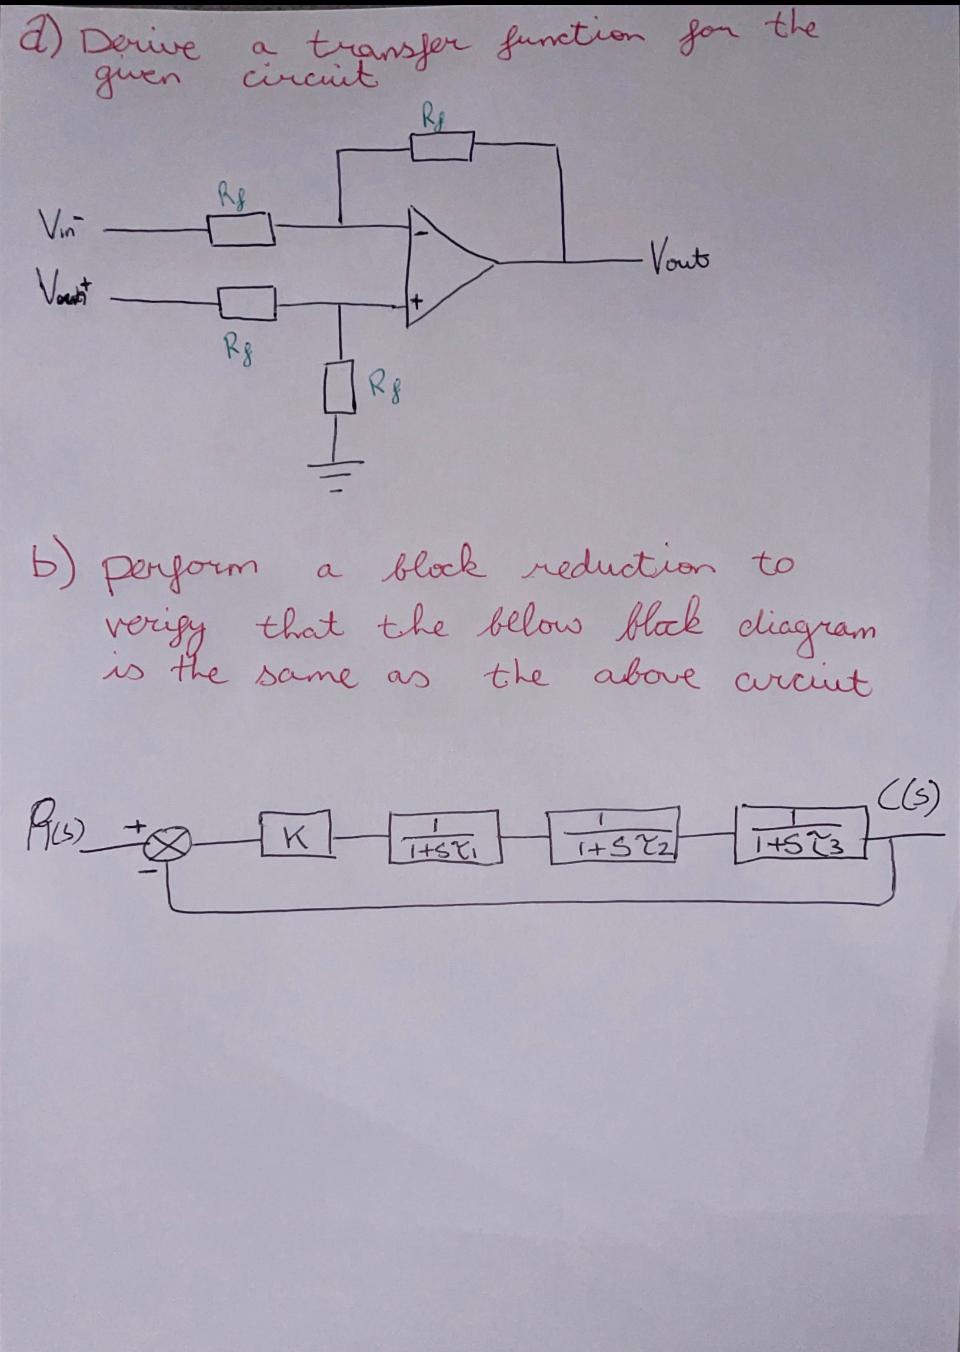 a) Derive a transfer function for the
given circuit
Rf
Rf
Vin-
Vout
+
Rf
Rf
b) perform a block reduction to
verify that the below block diagram
is the same as the above circuit
R(s)
+
-
K
1
1+Sτ1
1
1+Sτ2
1
1+Sτ3
C(s)